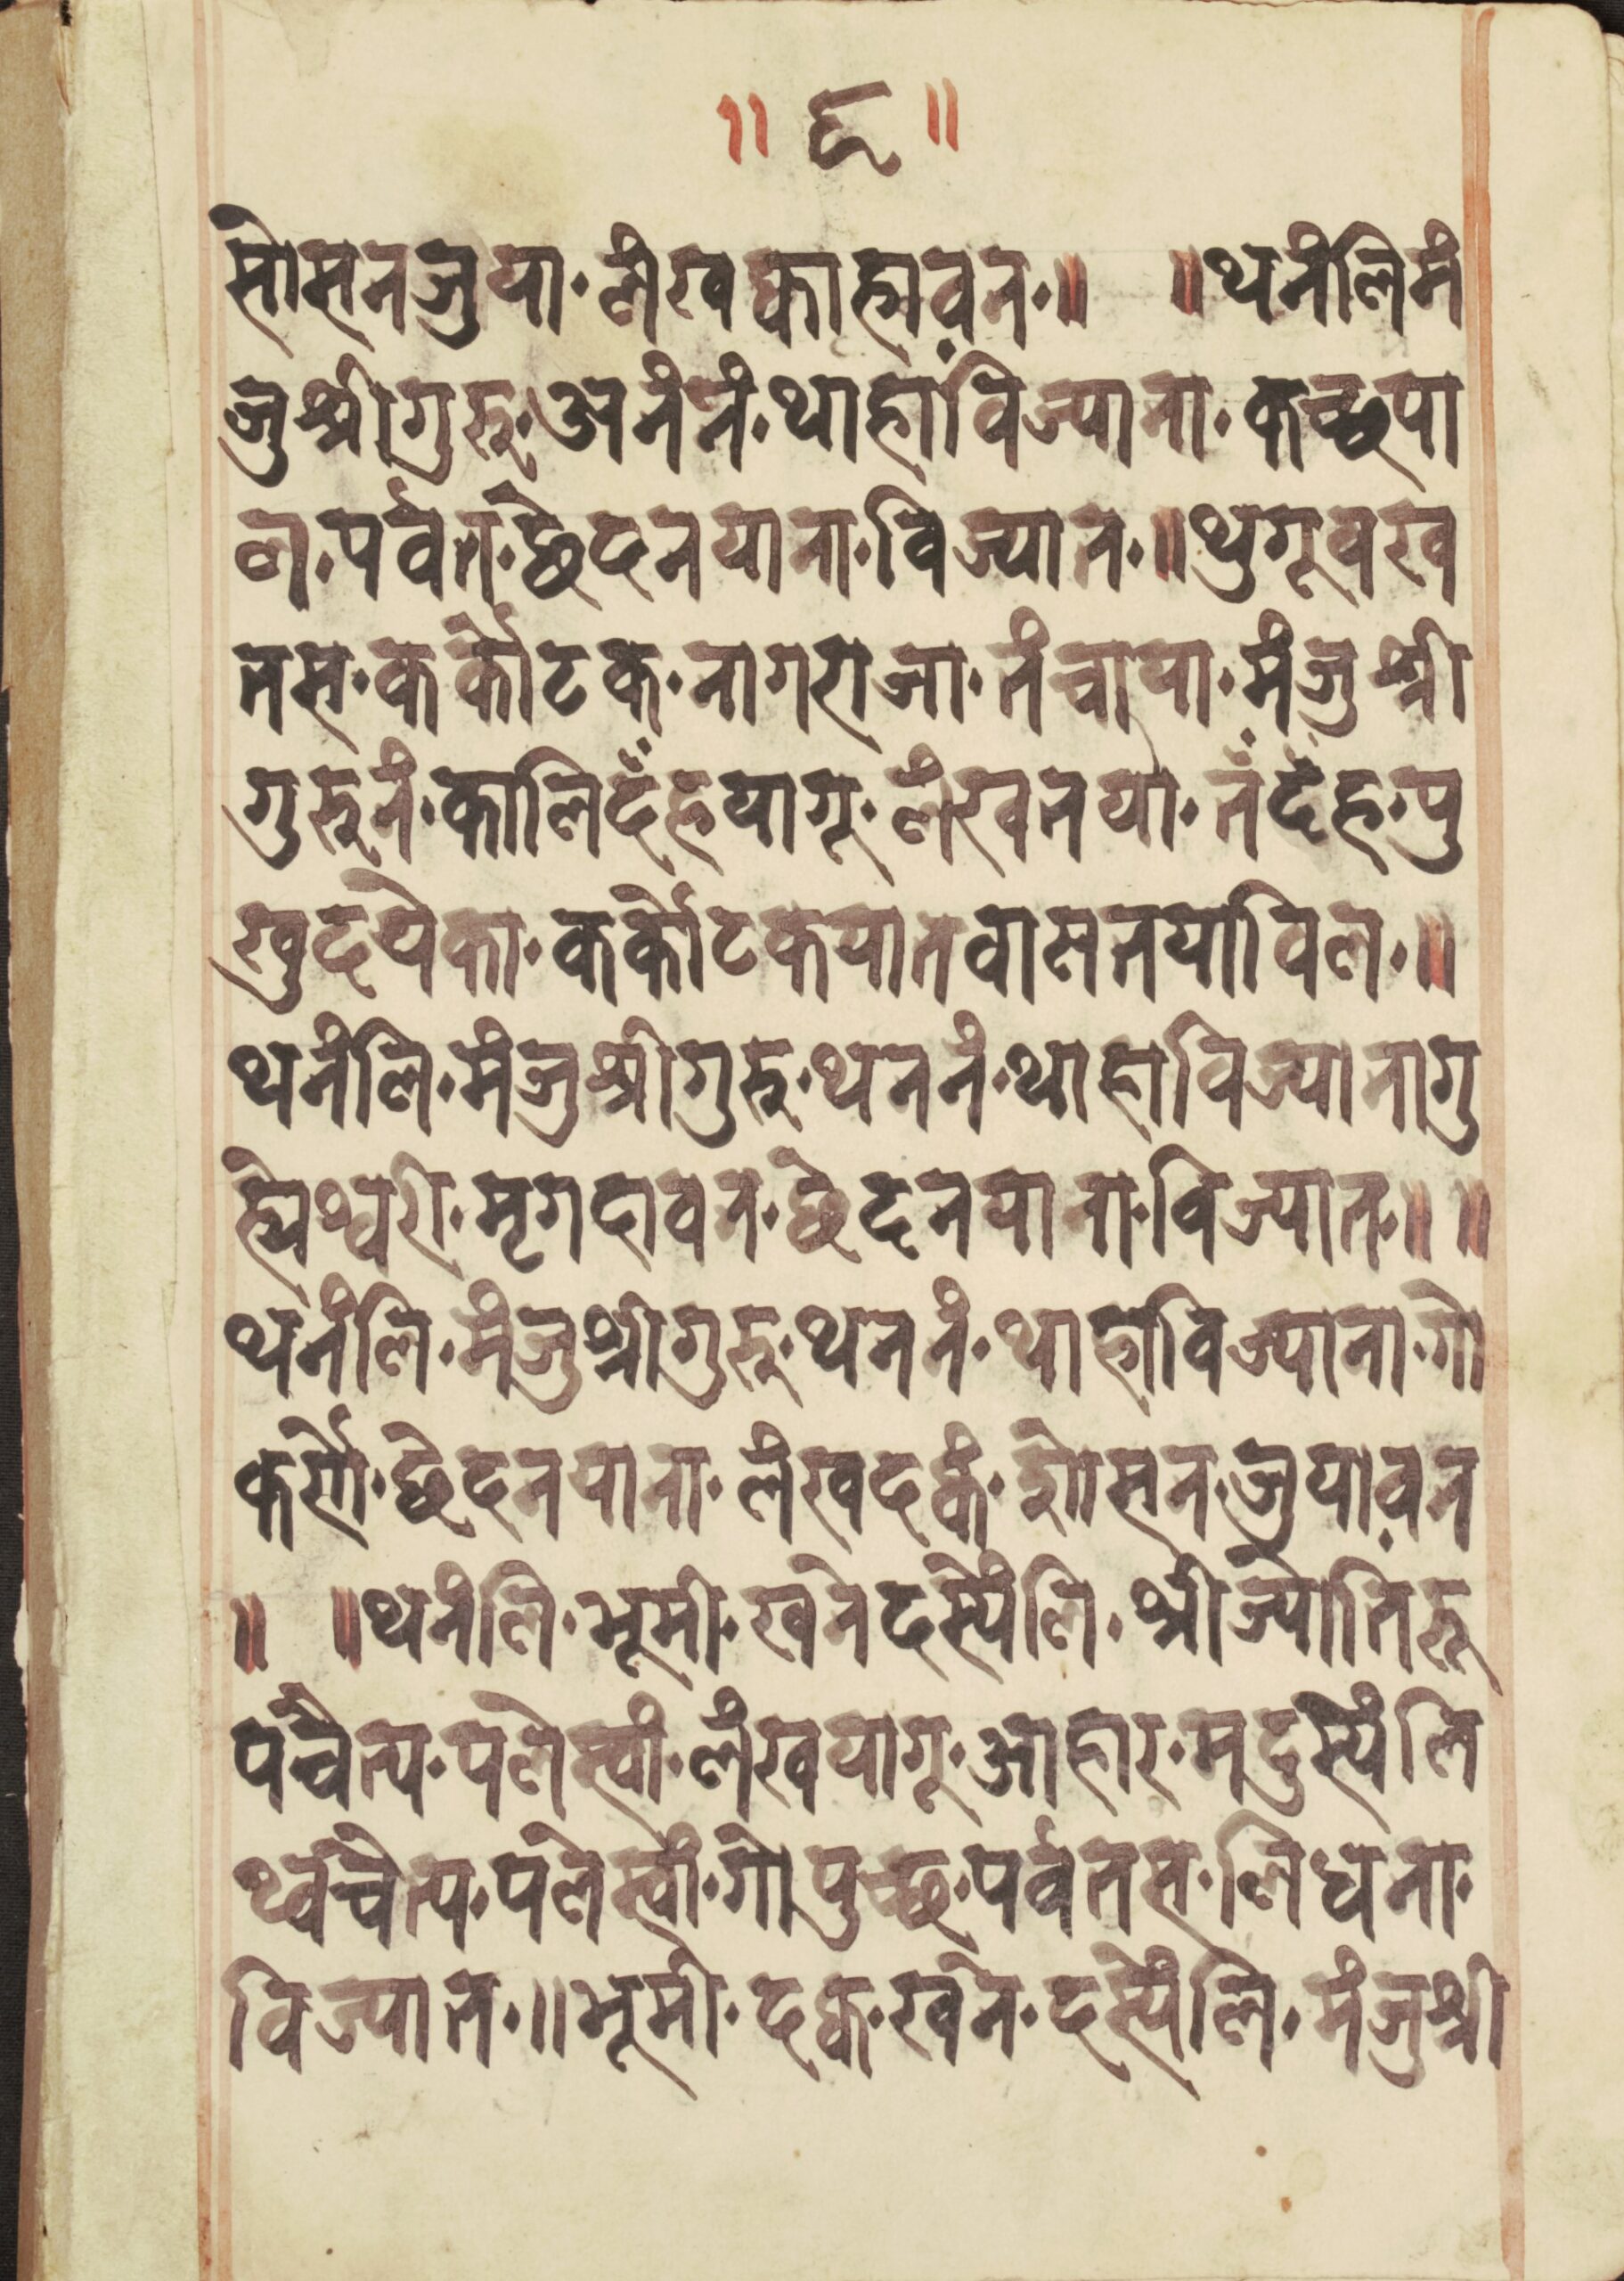 ॥ ६ ॥
सोसनजुया॰ लंखक्वाह्रावन॰॥ ॥थनंलिमं
जुश्रीगुरु॰अनंनं॰थाहांविज्याना॰कच्छपा
ल॰पर्वत॰छेदनयाना॰विज्यात॰॥थुगूवख
तस॰कर्कोटक॰नागराजा॰तंचाया॰मंजुश्री
गुरुनं॰कालिदँहयागू॰लंखनया॰नंदँह॰पु
खुदयेका॰कर्कोटकयातवासनयाविल॰॥
थनंलि॰मंजुश्रीगुरु॰थननं॰थाहाविज्यानागु
ह्येश्वरी॰मृगदावन॰छेदनयाना॰विज्यात॰॥ ॥
थनंलि॰मंजुश्रीगुरु॰थननं॰थाहाविज्याना॰गो
कर्सो॰छेदनयाना॰लंखदकं॰शोसन॰जुयावन
॥ ॥थनंलि॰भूमी॰खनेदस्येंलि॰श्रीज्योतिरू
पचैत्य॰पलेस्वां॰लंखयागू॰आहार॰मदुस्येंलि
थ्वचैत्य॰पलेस्वां॰गोपुच्छ॰पर्वतस॰लिधना॰
विज्यात॰॥भूमी॰दक्व॰खंन॰दस्येंलि॰मंजुश्री